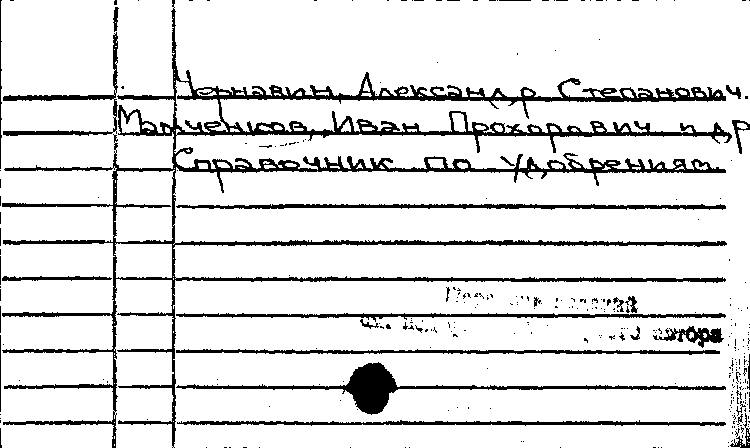 Чернавин, Александр Степанович.
Мамченков, Иван Прохорович и др
Справочник по удобрениям.
автора